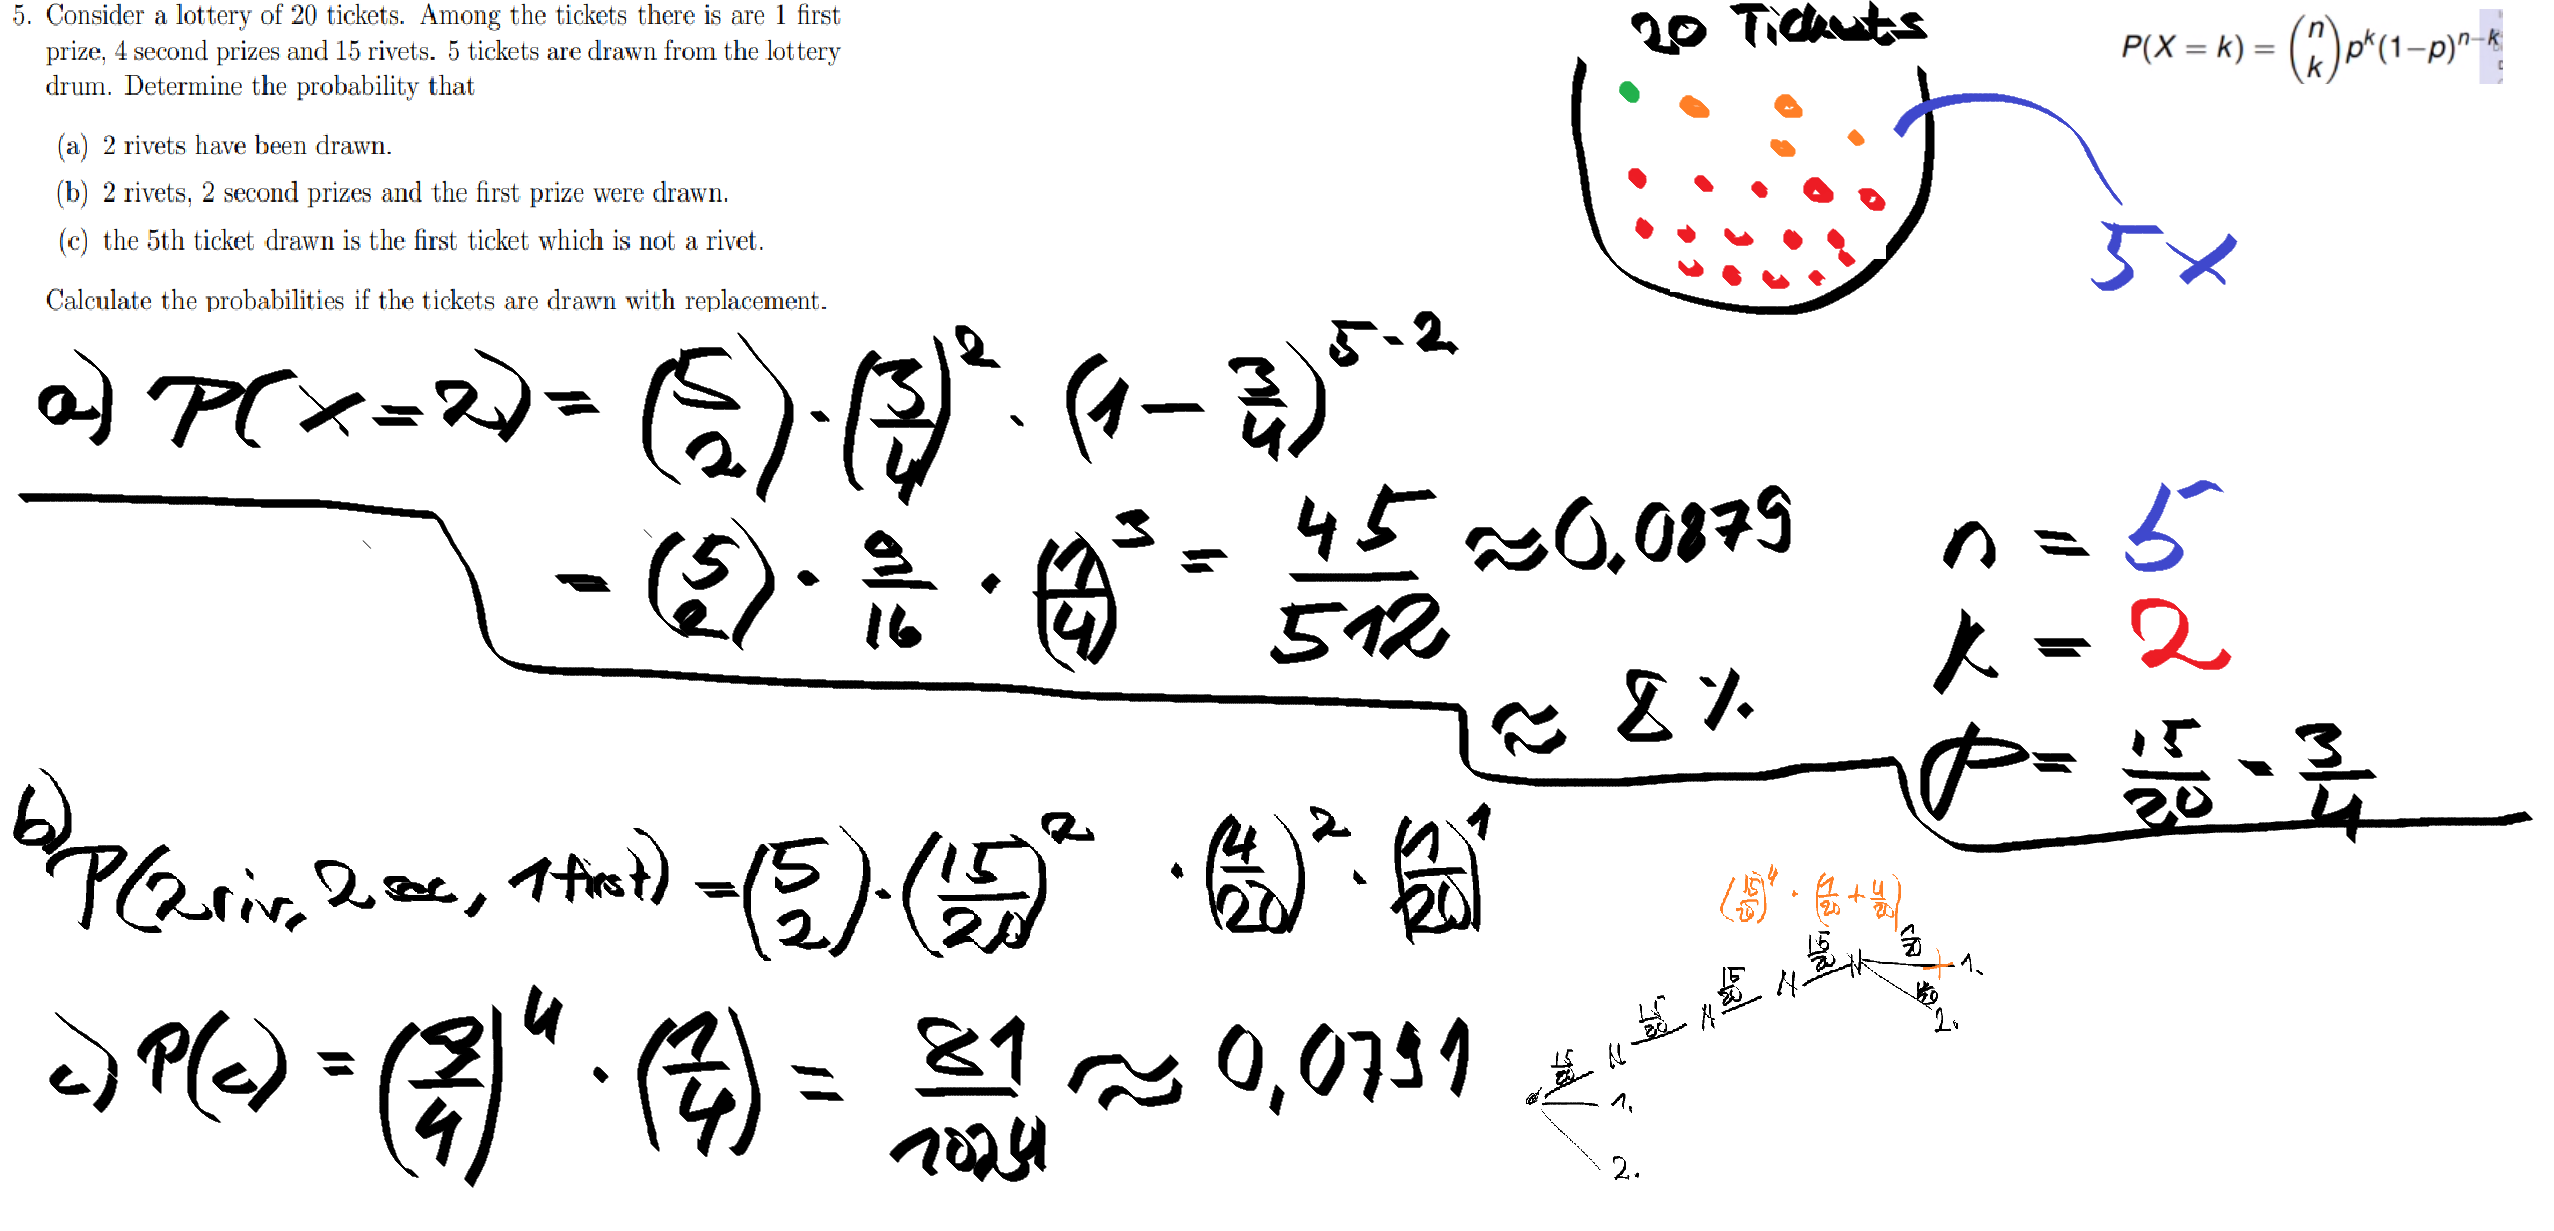 5. Consider a lottery of 20 tickets. Among the tickets there is are 1 first
prize, 4 second prizes and 15 rivets. 5 tickets are drawn from the lottery
drum. Determine the probability that
(a) 2 rivets have been drawn.
(b) 2 rivets, 2 second prizes and the first prize were drawn.
(c) the 5th ticket drawn is the first ticket which is not a rivet.
Calculate the probabilities if the tickets are drawn with replacement.
20 Tickets
P(X = k) = (n k) p^k (1−p)^n−k
5x
a) P(x=2) = (5 2) · (3/4)^2 · (1 − 3/4)^5-2
= (5 2) · 9/16 · (1/4)^3 = 45/512 ≈ 0,0879
≈ 8 %
n = 5
k = 2
p = 15/20 = 3/4
b) P(2 riv, 2 sec, 1 first) = (5 2) · (15/20)^2 · (4/20)^2 · (1/20)^1
(15/20)^4 · (1/20 + 4/20)
15/20 N 15/20 N 15/20 N 15/20 N 1/20 1.
4/20 2.
1.
2.
c) P(c) = (3/4)^4 · (1/4) = 81/1024 ≈ 0,0791